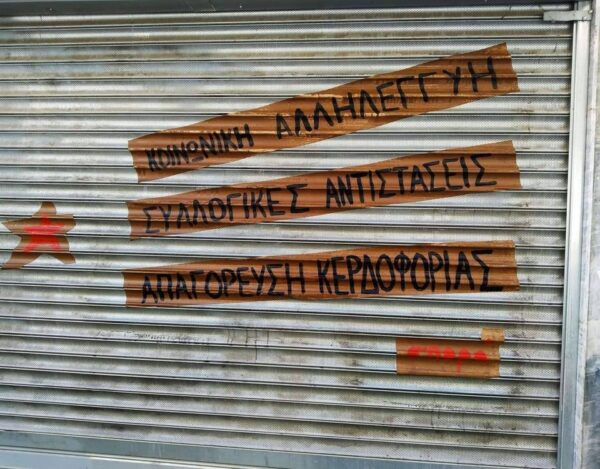 ΚΟΙΝΩΝΙΚΗ ΑΛΛΗΛΕΓΓΥΗ
ΣΥΛΛΟΓΙΚΕΣ ΑΝΤΙΣΤΑΣΕΙΣ
ΑΠΑΓΟΡΕΥΣΗ ΚΕΡΔΟΦΟΡΙΑΣ